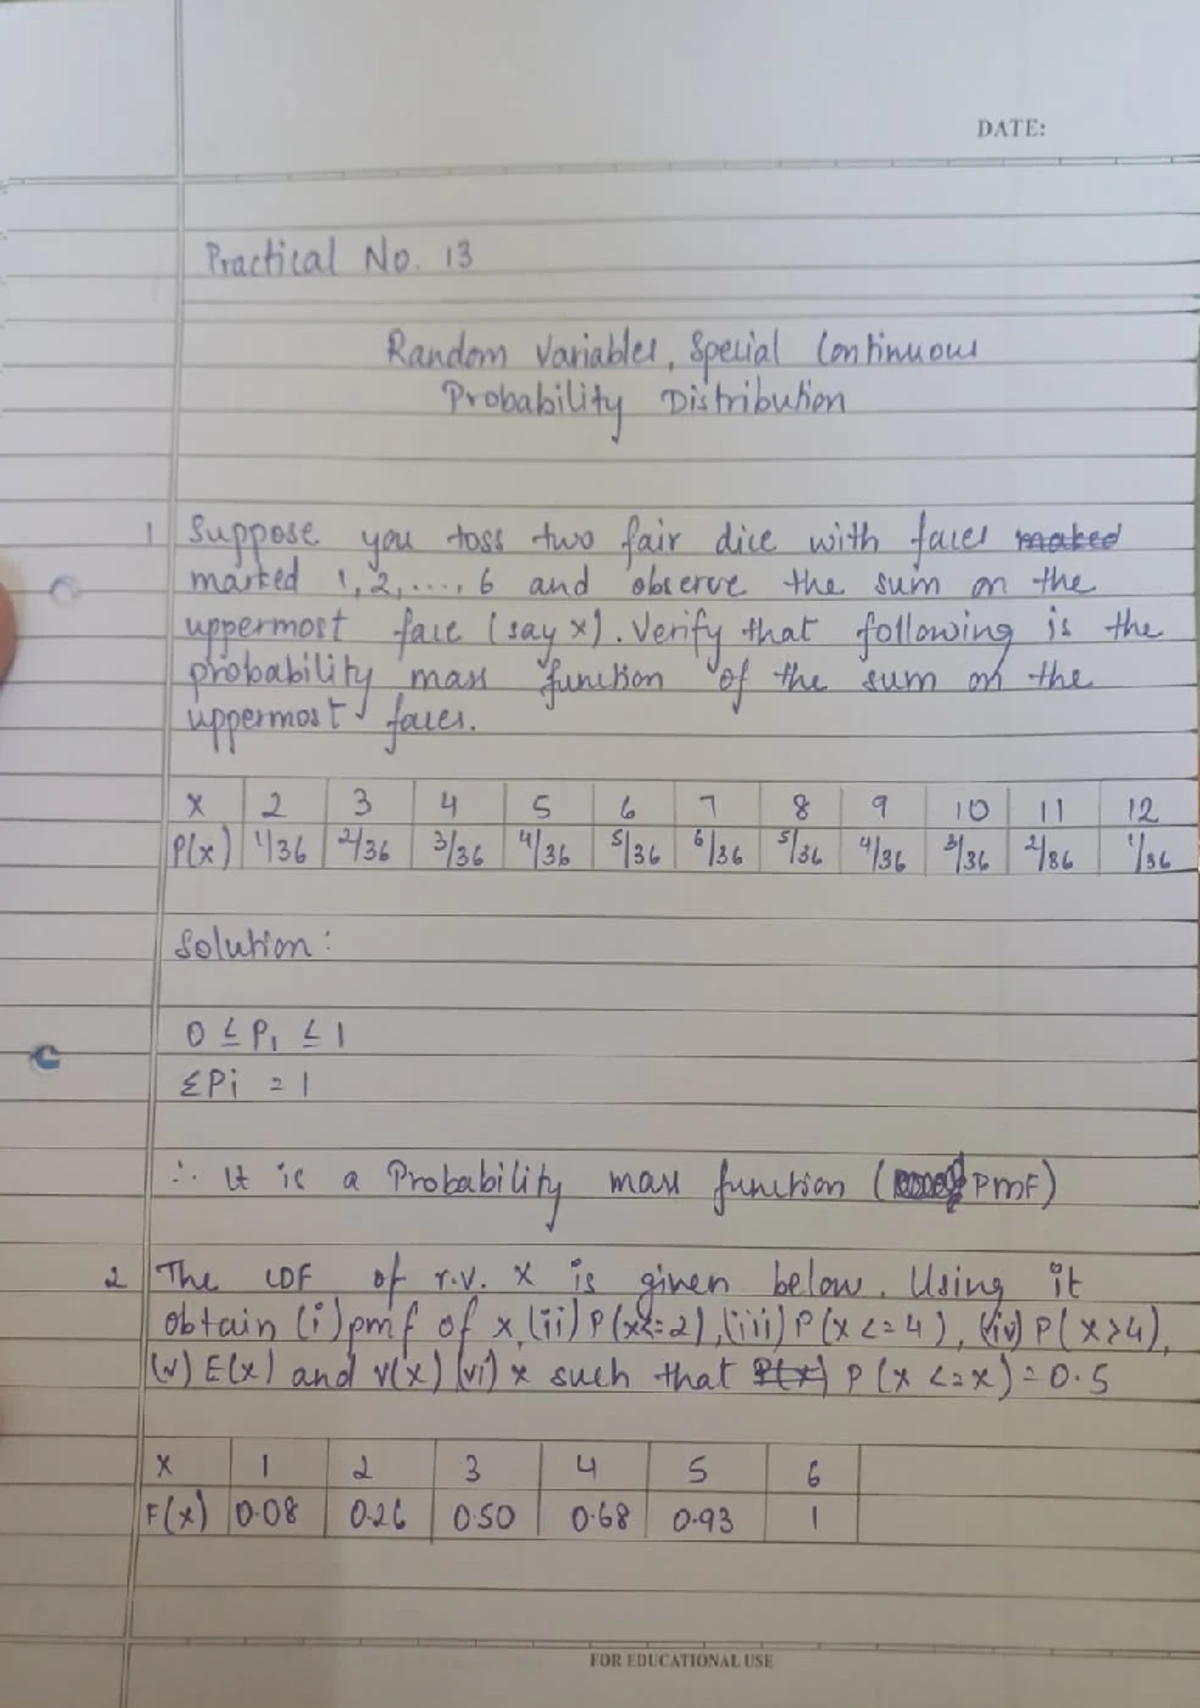 DATE:
Practical No. 13
Random Variables, Special Continuous
Probability Distribution
1 Suppose you toss two fair dice with faces
marked 1, 2, ...., 6 and observe the sum on the
uppermost face (say x). Verify that following is the
probability mass function of the sum on the
uppermost faces.
X 2 3 4 5 6 7 8 9 10 11 12
P(x) 1/36 2/36 3/36 4/36 5/36 6/36 5/36 4/36 3/36 2/36 1/36
Solution:
0 ≤ Pi ≤ 1
ΣPi = 1
∴ It is a Probability mass function (PMF)
2 The CDF of r.v. X is given below. Using it
obtain (i) pmf of x, (ii) P(x<=2), (iii) P(x <= 4), (iv) P(x>4),
(v) E(x) and v(x) (vi) x such that P(x <= x) = 0.5
X 1 2 3 4 5 6
F(x) 0.08 0.26 0.50 0.68 0.93 1
FOR EDUCATIONAL USE